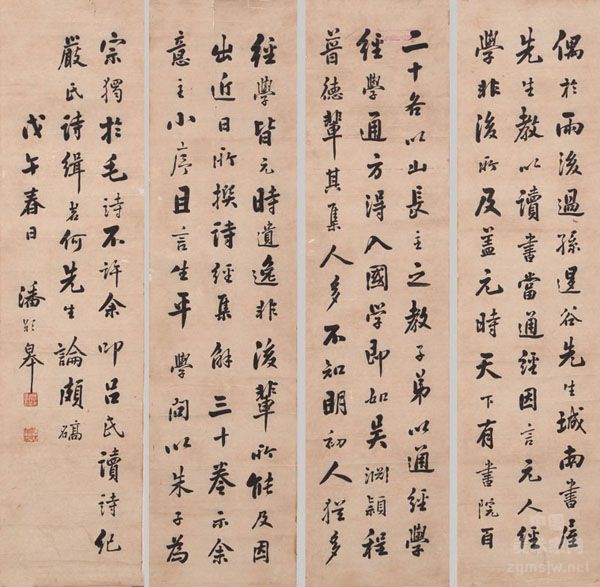 偶於雨後過孫退谷先生城南書屋
先生教以讀書當通經因言元人經
學非後所及蓋元時天下有書院百
二十各以山長主之教子弟以通經學
經學通方得入國學即如吳淵穎程
普德輩其集人多不知明初人猶多
經學皆元時遺逸非後輩所能及因
出近日所撰詩經集解三十卷示余
意主小序且言生平學問以朱子為
宗獨於毛詩不許余叩呂氏讀詩紀
嚴氏詩緝若何先生論頗碻
戊午春日 潘齡皋
zgmsjw.net